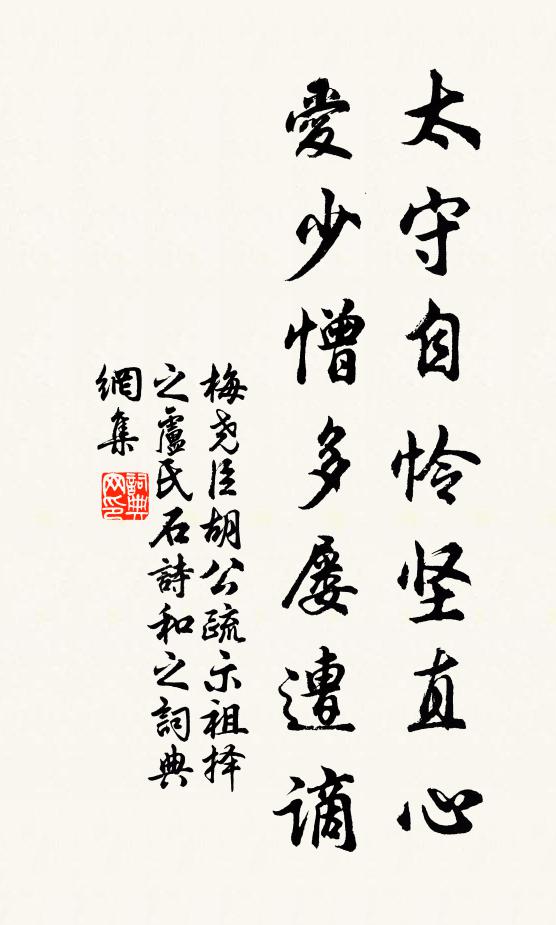 太守自怜坚直心
愛少憎多屡遭谪
梅尧臣胡公疏示祖择
之盧氏石詩和之詞典
網集
詞典
网印